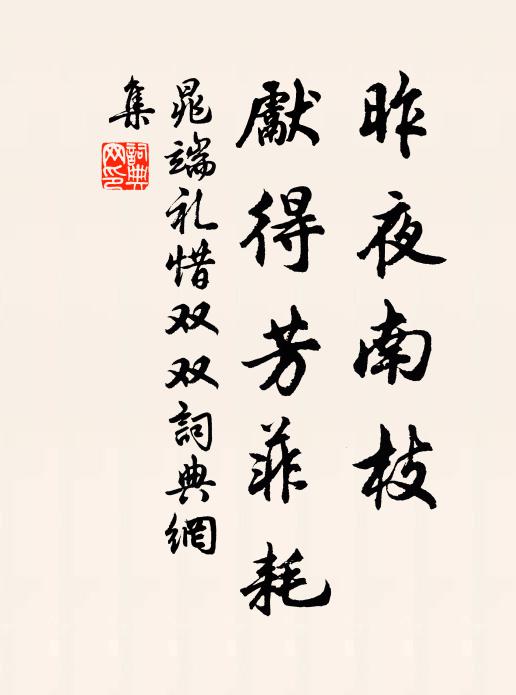 昨夜南枝
獻得芳菲耗
晁端礼惜双双詞典網
集
詞典
网印